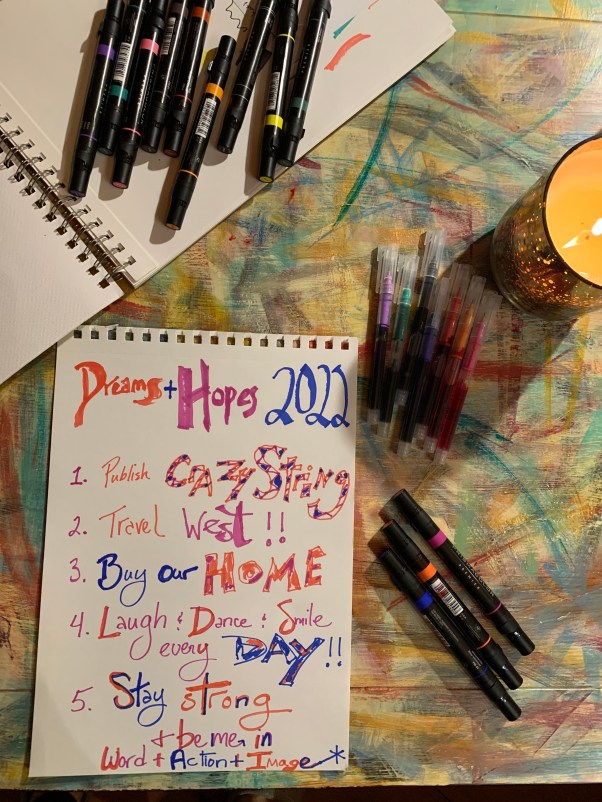 Dreams + Hopes 2022
1. Publish CRAZY String
2. Travel West!!
3. Buy our HOME
4. Laugh & Dance & Smile
every DAY!!
5. Stay strong
+ be me in
Word + Action + Image*